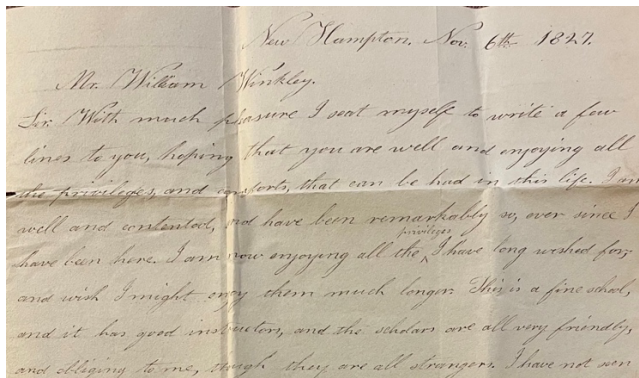 New Hampton, Nov. 6th 1827.
Mr. William Winkley.
Sir. With much pleasure I seat myself to write a few
lines to you, hoping that you are well and enjoying all
the privileges, and comforts, that can be had in this life. I am
well and contented, and have been remarkably so, ever since I
have been here. I am now enjoying all the privileges I have long wished for,
and wish I might enjoy them much longer. This is a fine school,
and it has good instructors, and the scholars are all very friendly,
and obliging to me, though they are all strangers. I have not seen